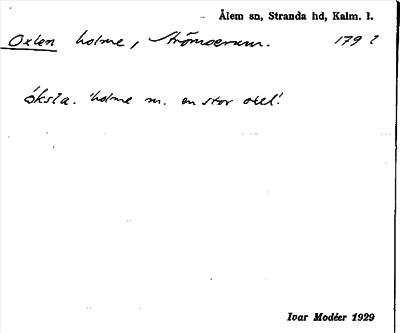 Ålem sn, Stranda hd, Kalm. l.
Oxlen holme, Strömserum. 179 l
holme m. en stor
Ivar Modéer 1929